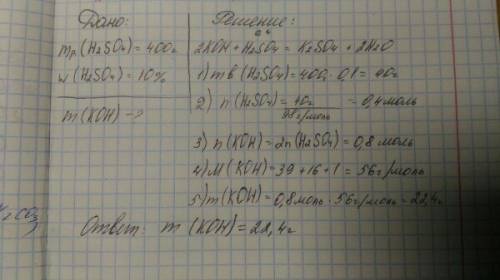 Дано:
mр(H2SO4)=400г
w(H2SO4)=10%
m(KOH)-?
Решение:
0,4
2KOH+H2SO4=K2SO4+2H2O
1) mв(H2SO4)=400·0,1=40г
2) n(H2SO4)=40г/98г/моль=0,4моль
3) n(KOH)=2n(H2SO4)=0,8моль
4) M(KOH)=39+16+1=56г/моль
5) m(KOH)=0,8моль·56г/моль=22,4г
Ответ: m(KOH)=22,4г